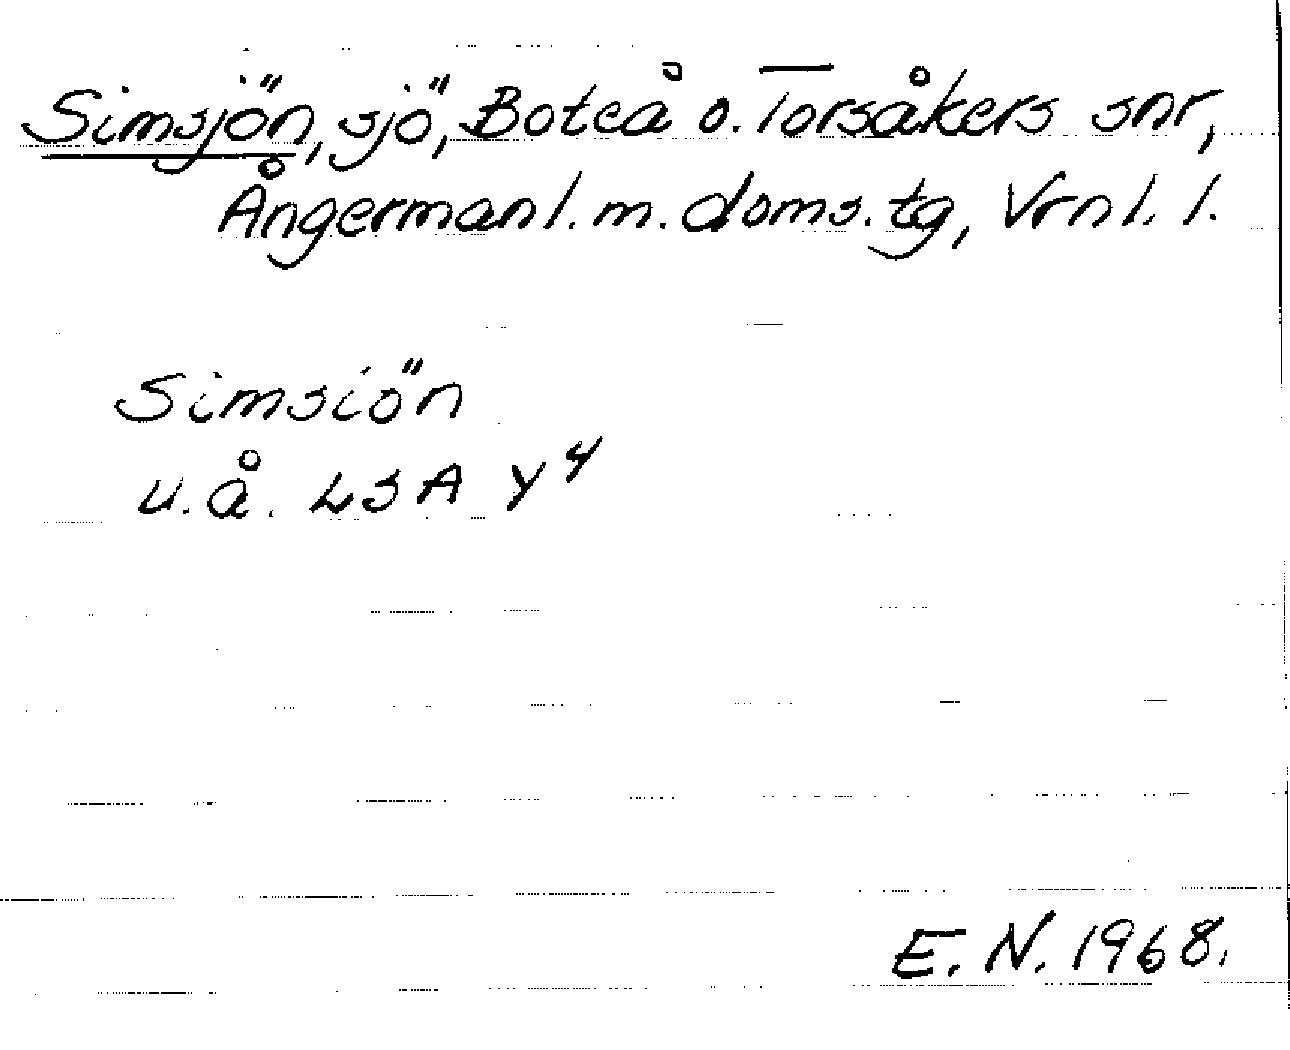 Simsjön, sjö, Boteå o. Torsåkers snr,
Ångermanl. m. doms. tg, Vrnl. l.
Simsiön
u. å. LSA Y4
E. N. 1968.